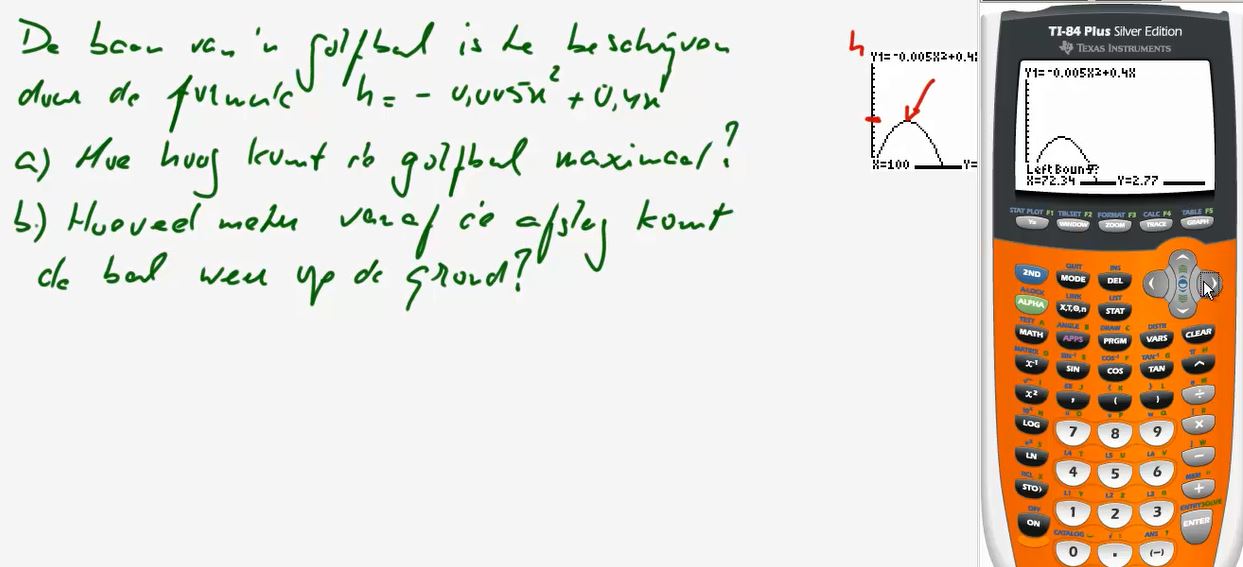 De baan van 'n golfbal is te beschrijven
door de formule h = - 0,005x² + 0,4x
a) Hoe hoog komt de golfbal maximaal?
b.) Hoeveel meter vanaf de afslag komt
de bal weer op de grond?
h
Y1=-0.005X2+0.4X
X=100 Y=
TI-84 Plus Silver Edition
TEXAS INSTRUMENTS
Y1=-0.005X2+0.4X
Left Bound?
X=72.34 Y=2.77
STAT PLOT F1 TBLSET F2 FORMAT F3 CALC F4 TABLE F5
Y= WINDOW ZOOM TRACE GRAPH
QUIT INS
2ND MODE DEL
A-LOCK LINK LIST
ALPHA X,T,Θ,n STAT
TEST A ANGLE B DRAW C DISTR
MATH APPS PRGM VARS CLEAR
MATRIX D SIN⁻¹ E COS⁻¹ F TAN⁻¹ G π H
x⁻¹ SIN COS TAN ^
x² , ( ) ÷
LOG 7 8 9 ×
LN 4 5 6 −
RCL X L1 Y L2 Z L3 MEM
STO› 1 2 3 +
OFF ENTRY SOLVE
ON ENTER
CATALOG ANS ?
0 . (−)